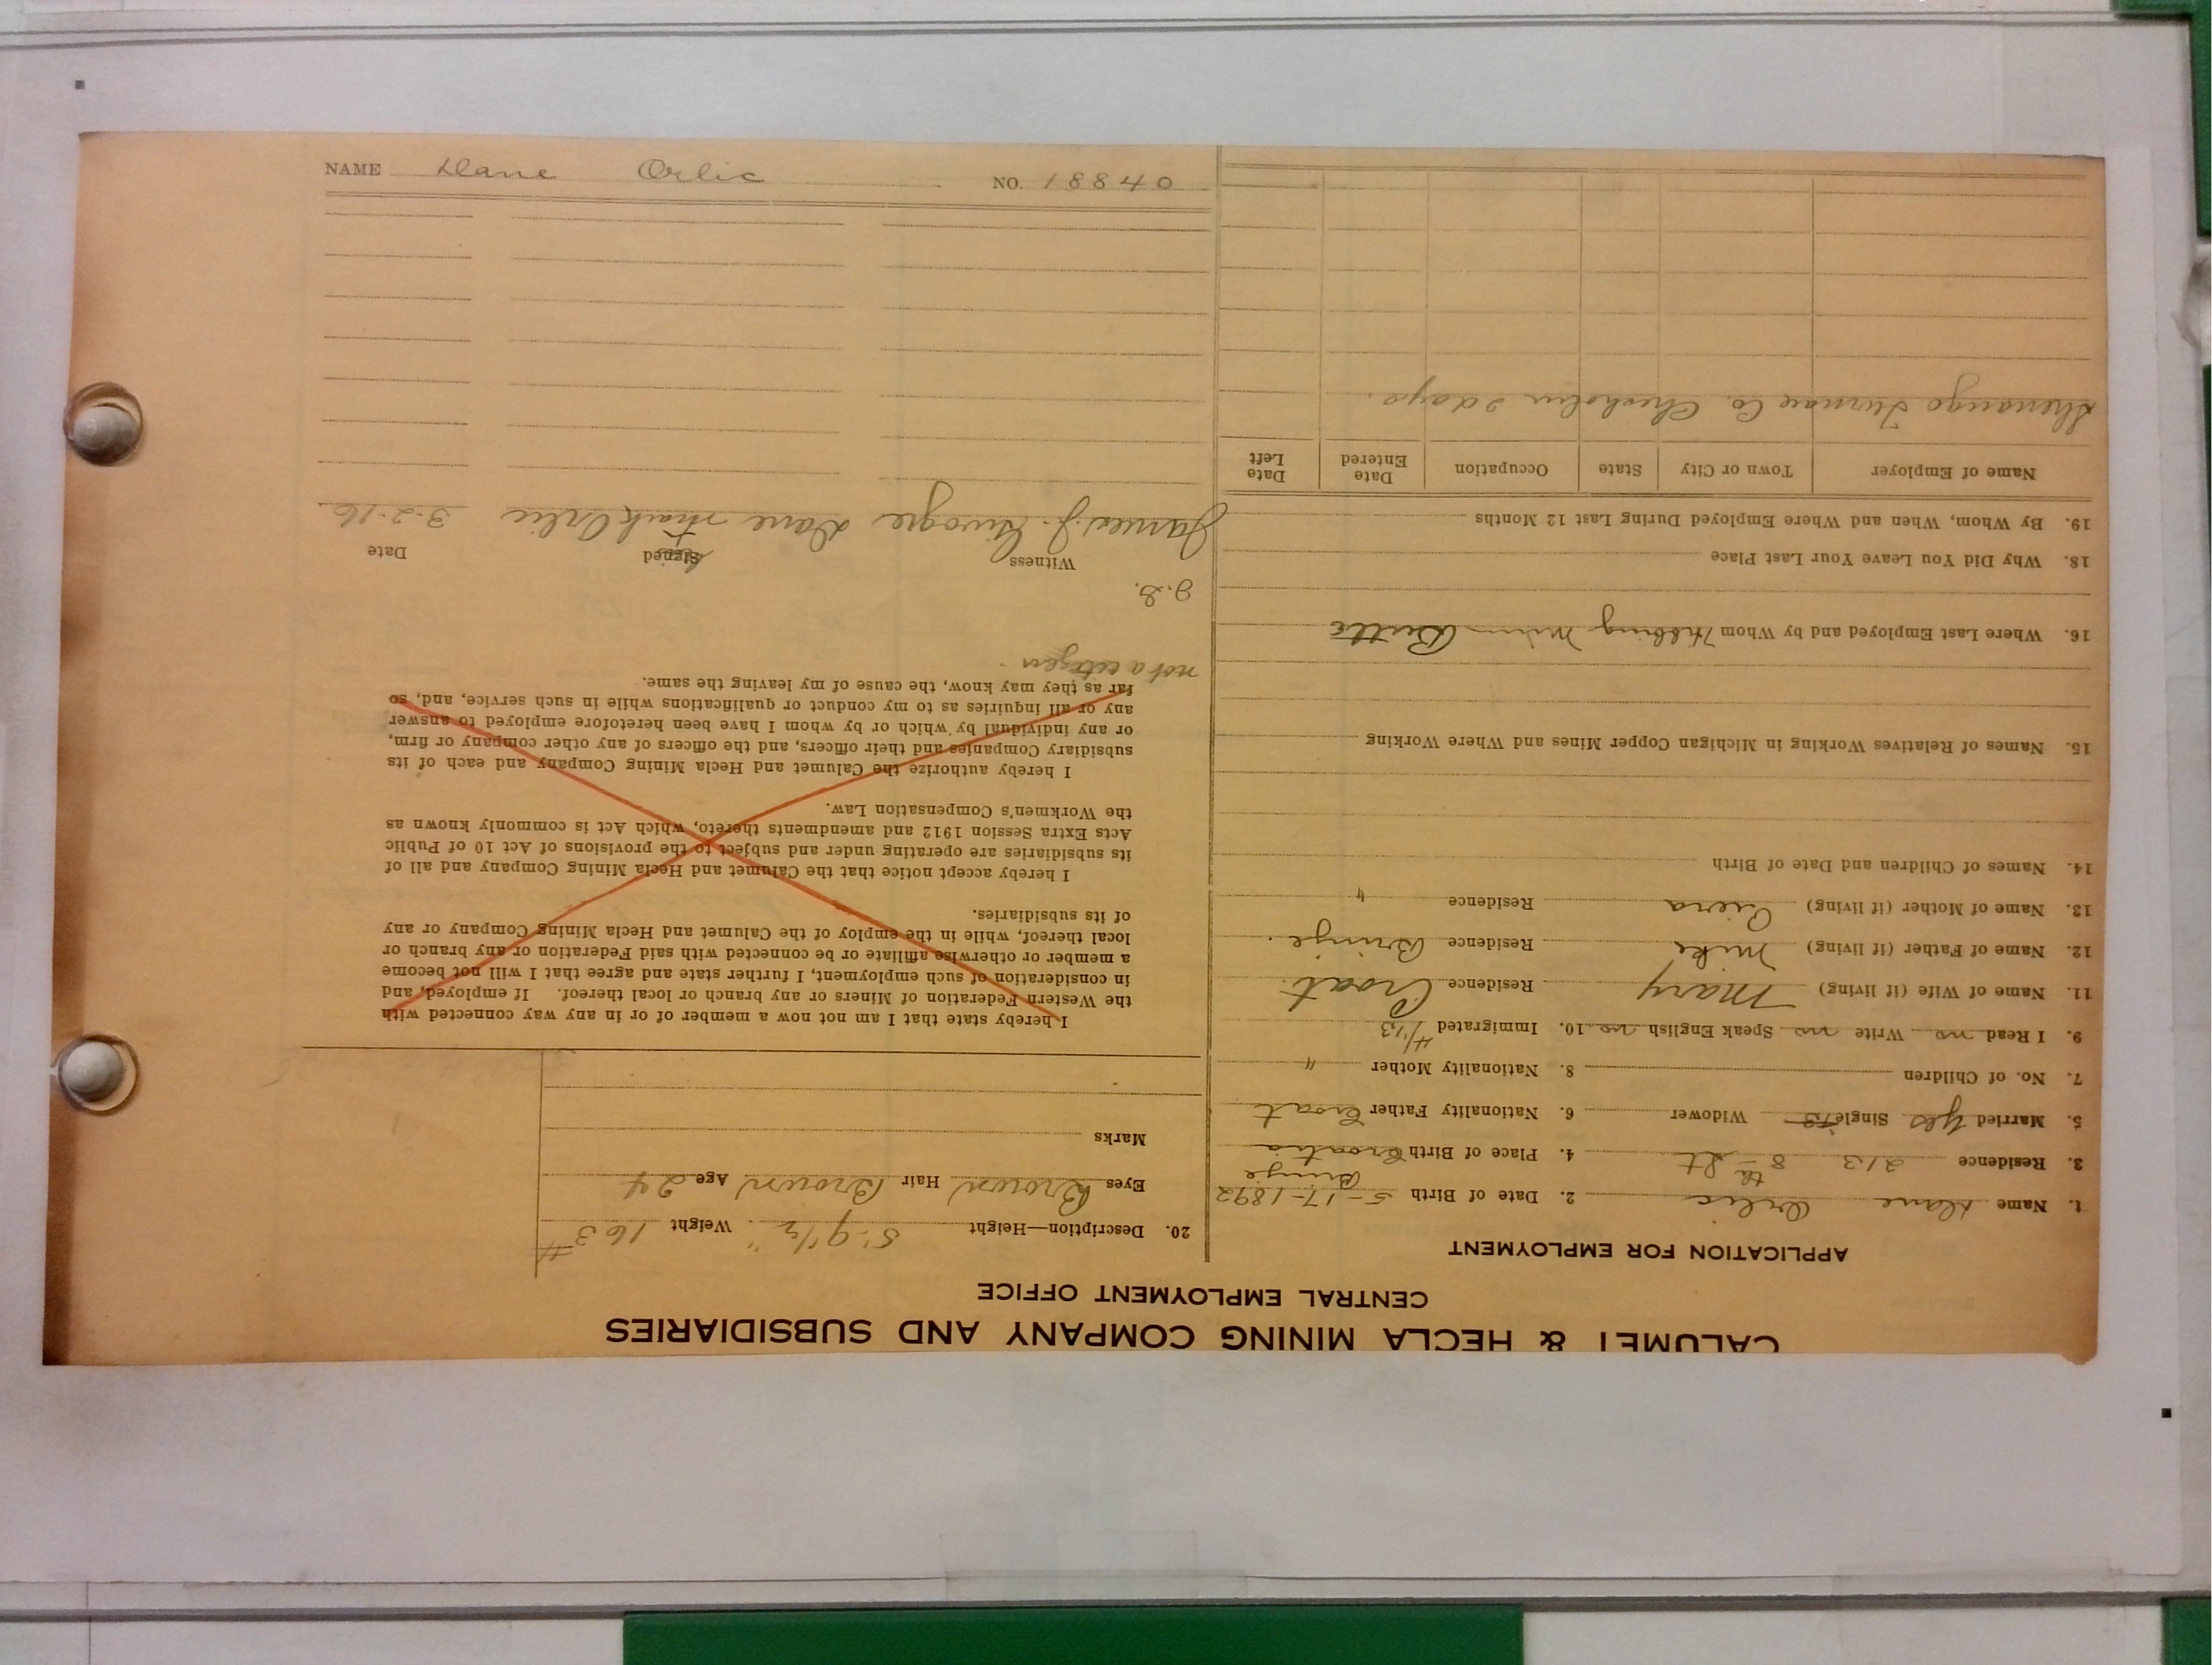 CALUMET & HECLA MINING COMPANY AND SUBSIDIARIES
CENTRAL EMPLOYMENT OFFICE
APPLICATION FOR EMPLOYMENT
1. Name Dane Orlic 2. Date of Birth 5-17-1892
Brinje
3. Residence 213 8th St. 4. Place of Birth Croatia
5. Married yes Single Widower 6. Nationality Father Croat
7. No. of Children 8. Nationality Mother "
9. I Read no Write no Speak English no 10. Immigrated 4/13
11. Name of Wife (if living) Mary Residence Croat.
12. Name of Father (if living) Mike Residence Brinje.
13. Name of Mother (if living) Residence "
14. Names of Children and Date of Birth
15. Names of Relatives Working in Michigan Copper Mines and Where Working
16. Where Last Employed and by Whom Hibbing Minn Butte
18. Why Did You Leave Your Last Place
19. By Whom, When and Where Employed During Last 12 Months
Name of Employer Town or City State Occupation Date Entered Date Left
Shenango Furnace Co. Chisholm 2 days.
20. Description—Height 5' 9 1/2" Weight 163#
Eyes Brown Hair Brown Age 24
Marks
I hereby state that I am not now a member of or in any way connected with
the Western Federation of Miners or any branch or local thereof. If employed, and
in consideration of such employment, I further state and agree that I will not become
a member or otherwise affiliate or be connected with said Federation or any branch or
local thereof, while in the employ of the Calumet and Hecla Mining Company or any
of its subsidiaries.
I hereby accept notice that the Calumet and Hecla Mining Company and all of
its subsidiaries are operating under and subject to the provisions of Act 10 of Public
Acts Extra Session 1912 and amendments thereto, which Act is commonly known as
the Workmen's Compensation Law.
I hereby authorize the Calumet and Hecla Mining Company and each of its
subsidiary Companies and their officers, and the officers of any other company or firm,
or any individual by which or by whom I have been heretofore employed to answer
any or all inquiries as to my conduct or qualifications while in such service, and, so
far as they may know, the cause of my leaving the same.
not a citizen.
J.G.
Witness Signed Date
James J. Dane Orlic 3-2-16.
NAME Dane Orlic NO. 18840